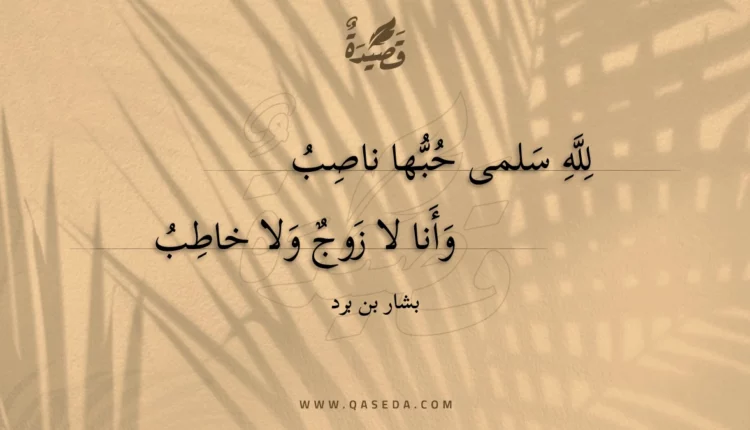 قَصِيدَةٌ
لِلَّهِ سَلمى حُبُّها ناصِبُ
وَأَنا لا زَوجٌ وَلا خاطِبُ
بشار بن برد
WWW.QASEDA.COM